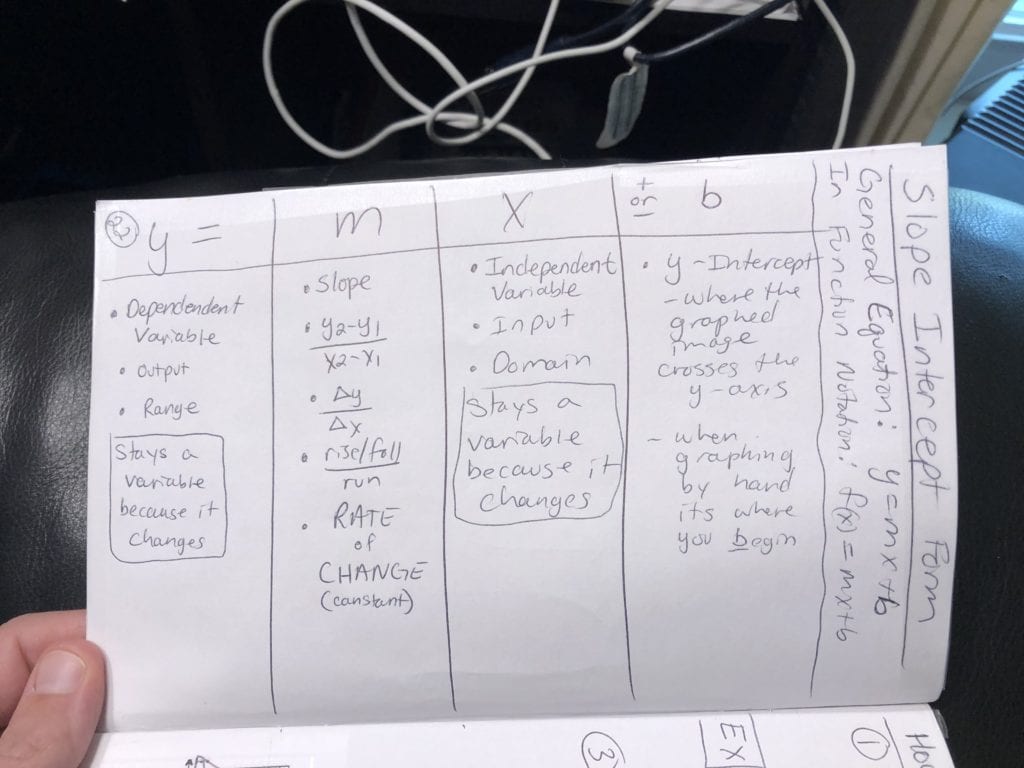 Slope Intercept Form
General Equation: y=mx+b
In Function Notation: f(x)=mx+b
② y =
• Dependendent
Variable
• output
• Range
Stays a
variable
because it
changes
m
• Slope
• y2-y1
x2-x1
• Δy
Δx
• rise/fall
run
• RATE
of
CHANGE
(constant)
X
• Independent
Variable
• Input
• Domain
Stays a
variable
because it
changes
+
or
-
b
• y-Intercept
- where the
graphed
image
crosses the
y-axis
- when
graphing
by hand
its where
you begin
③
EX
①